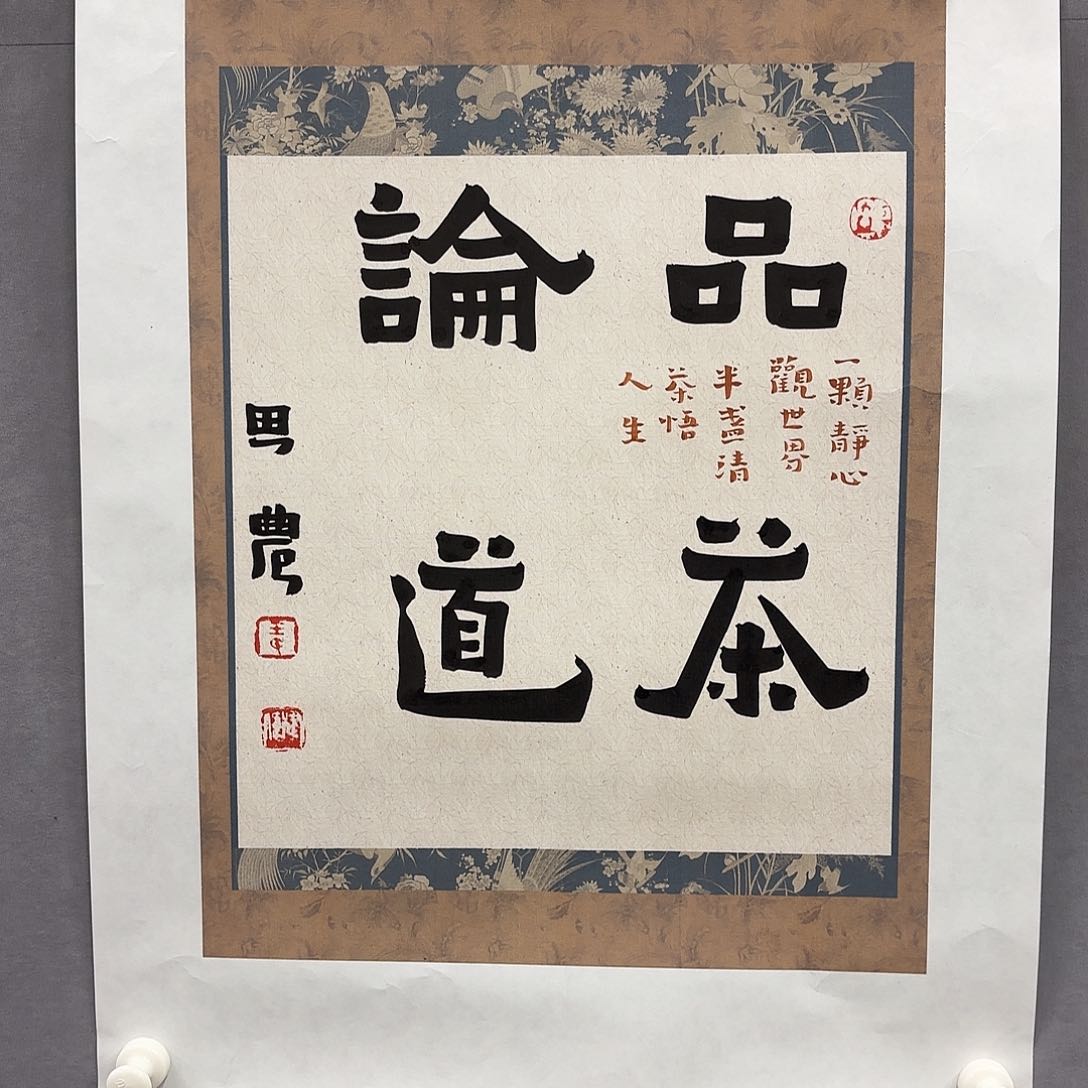 品茶
一顆靜心
觀世界
半盞清
茶悟
人生
論道
男農